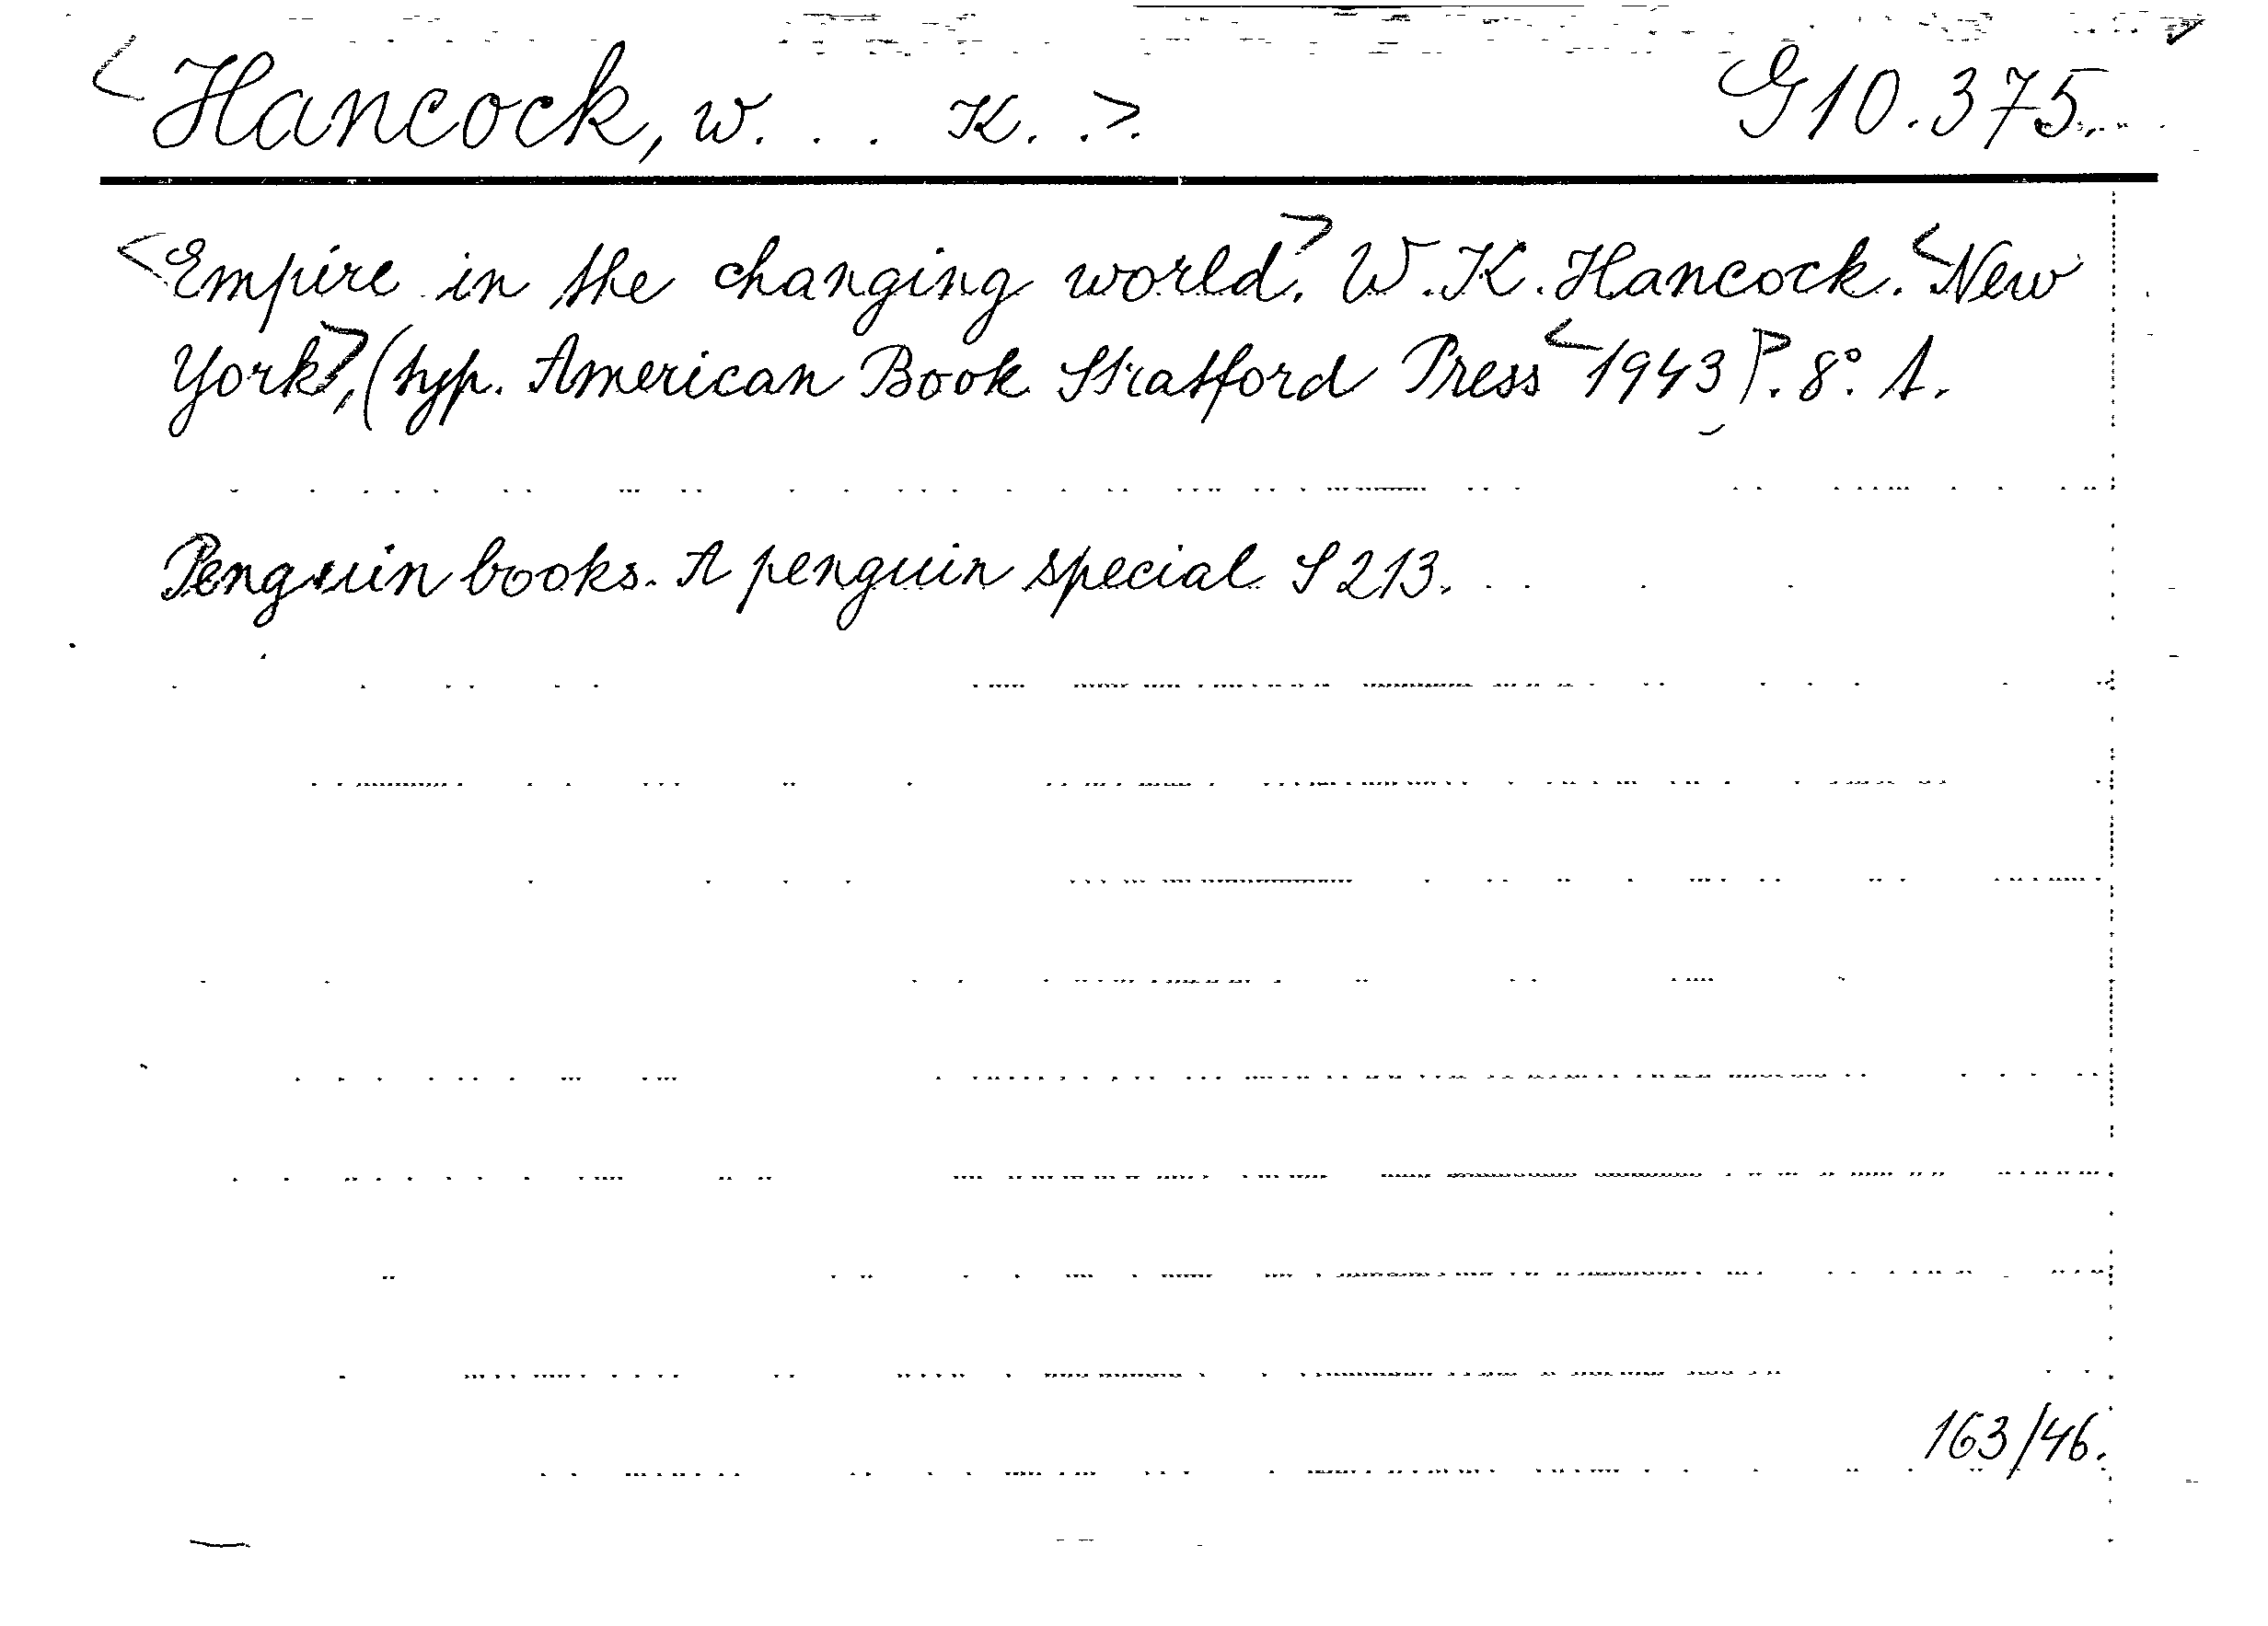 <Hancock, W. . . K. .>. G10.375.
<Empire in the changing world>. W.K. Hancock. <New
York>, (typ. American Book Stratford Press <1943)>. 8°. 1.
Penguin books. A penguin special S 213.
163/46.